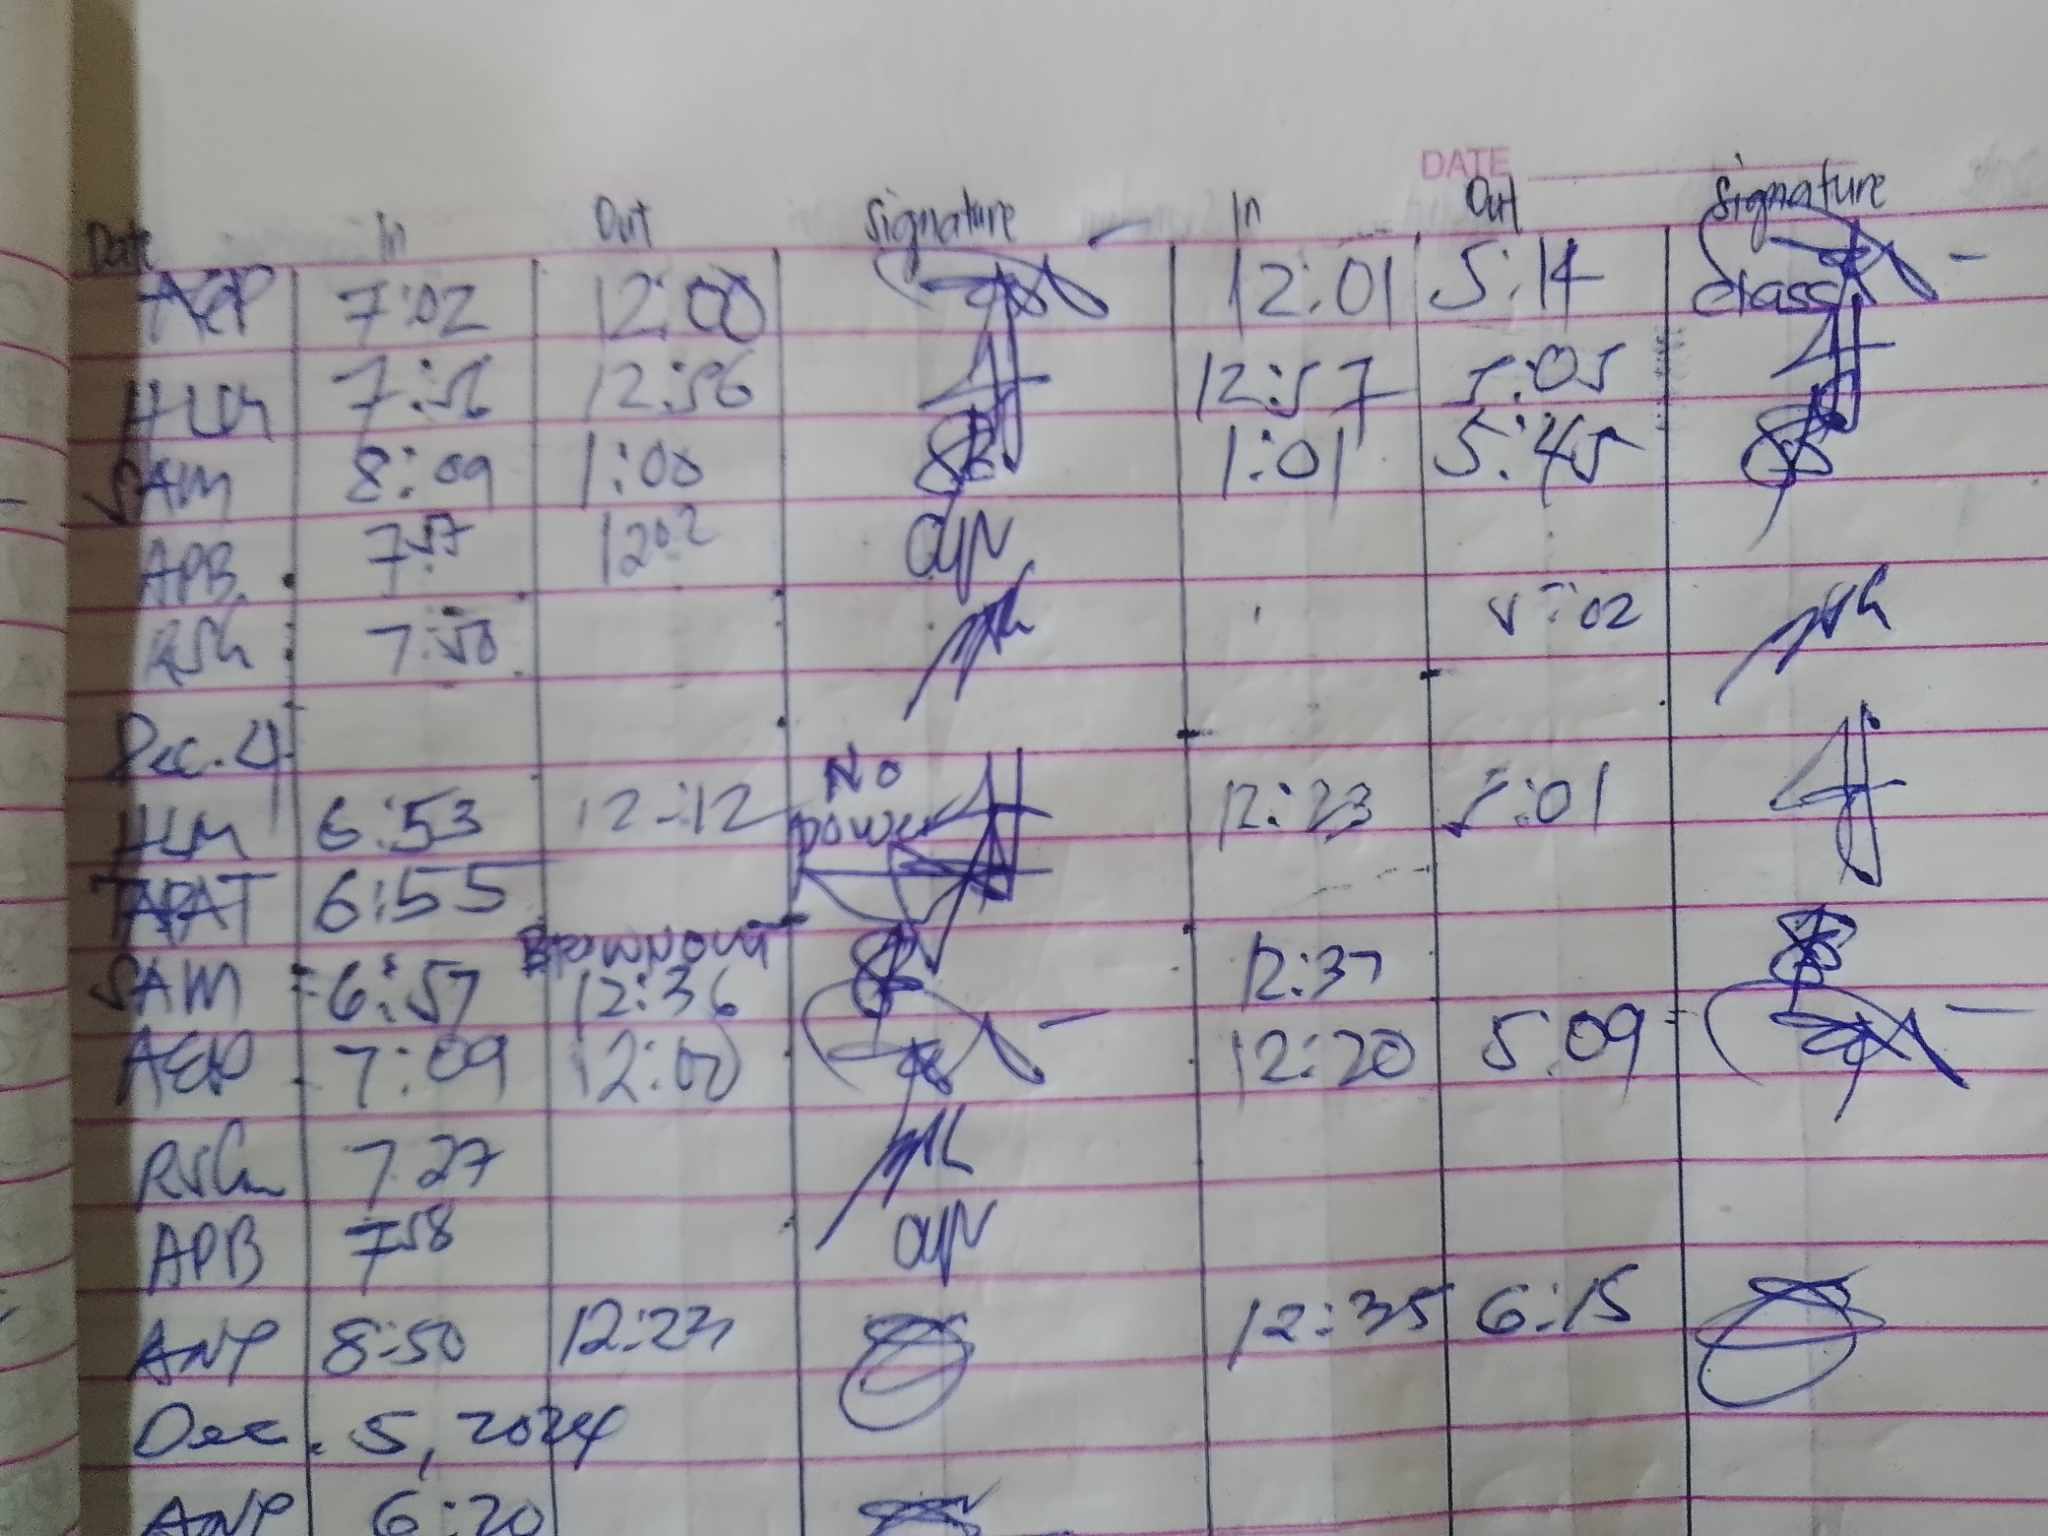 DATE
Date In Out Signature In Out Signature
AEP 7:02 12:00 12:01 5:14 class
HLM 7:56 12:56 12:57 5:05
SAM 8:09 1:00 1:01 5:45
APB 7:57 12:02
RSG 7:50 5:02
Dec. 4
HLM 6:53 12:12 No power 12:23 5:01
TAPAT 6:55
Brownout
SAM 6:57 12:36 12:37
AEP 7:09 12:00 12:20 5:09
RSG 7:27
APB 7:58
ANP 8:50 12:23 12:35 6:15
Dec. 5, 2024
ANP 6:20